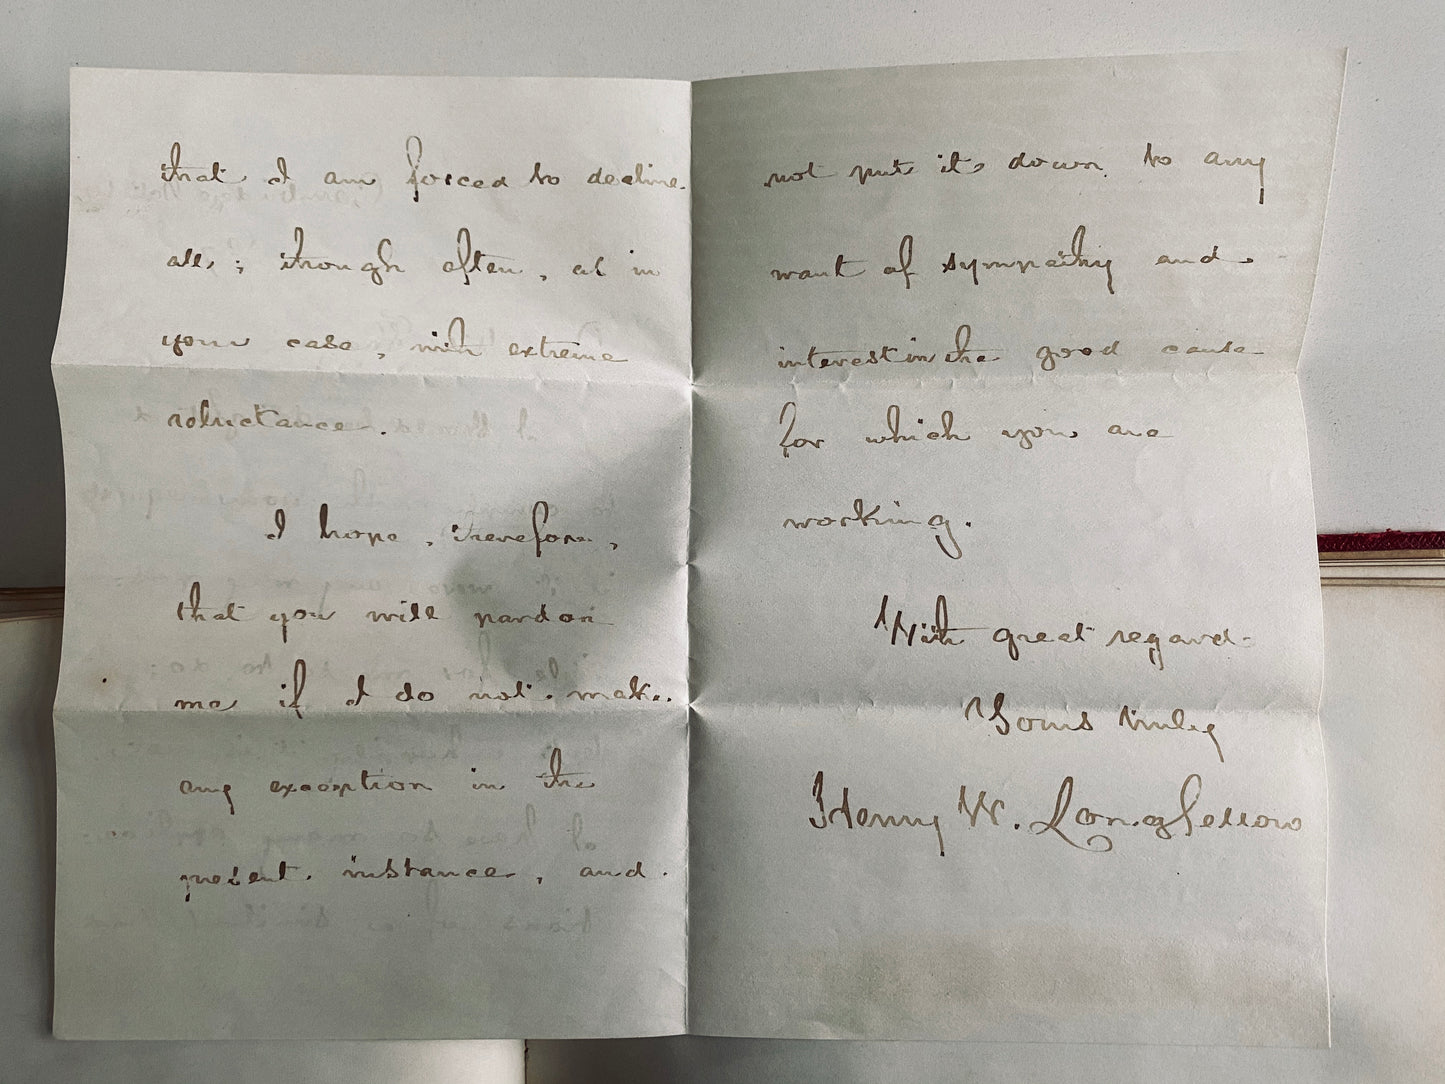 that I am forced to decline
all; though often, as in
your case, with extreme
reluctance.
I hope, therefore,
that you will pardon
me if I do not make
any exception in the
present instance, and
not put it down to any
want of sympathy and
interest in the good cause
for which you are
working.
With great regard
Yours truly
Henry W. Longfellow